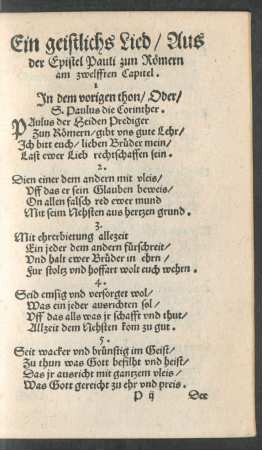 Ein geistlichs Lied / Aus
der Epistel Pauli zun Römern
am zwelfften Capitel.
1.
In dem vorigen thon / Oder /
S. Paulus die Corinther.
Paulus der Heiden Prediger
Zun Römern / gibt vns gute Lehr /
Ich bitt euch / lieben Brüder mein /
Last ewer Lieb rechtschaffen sein.
2.
Dien einer dem andern mit vleis /
Vff das er sein Glauben beweis /
On allen falsch red ewer mund
Mit seim Nehsten aus hertzen grund.
3.
Mit ehrerbietung allezeit
Ein jeder dem andern fürschreit /
Vnd halt ewer Brüder in ehrn /
Fur stoltz vnd hoffart wolt euch wehrn.
4.
Seid emsig vnd versorget wol /
Was ein jeder ausrichten sol /
Vff das alls was jr schafft vnd thut /
Allzeit dem Nehsten kom zu gut.
5.
Seit wacker vnd brünstig im Geist /
Zu thun was Gott befilht vnd heist /
Das jr ausricht mit gantzem vleis /
Was Gott gereicht zu ehr vnd preis.
P ij Der